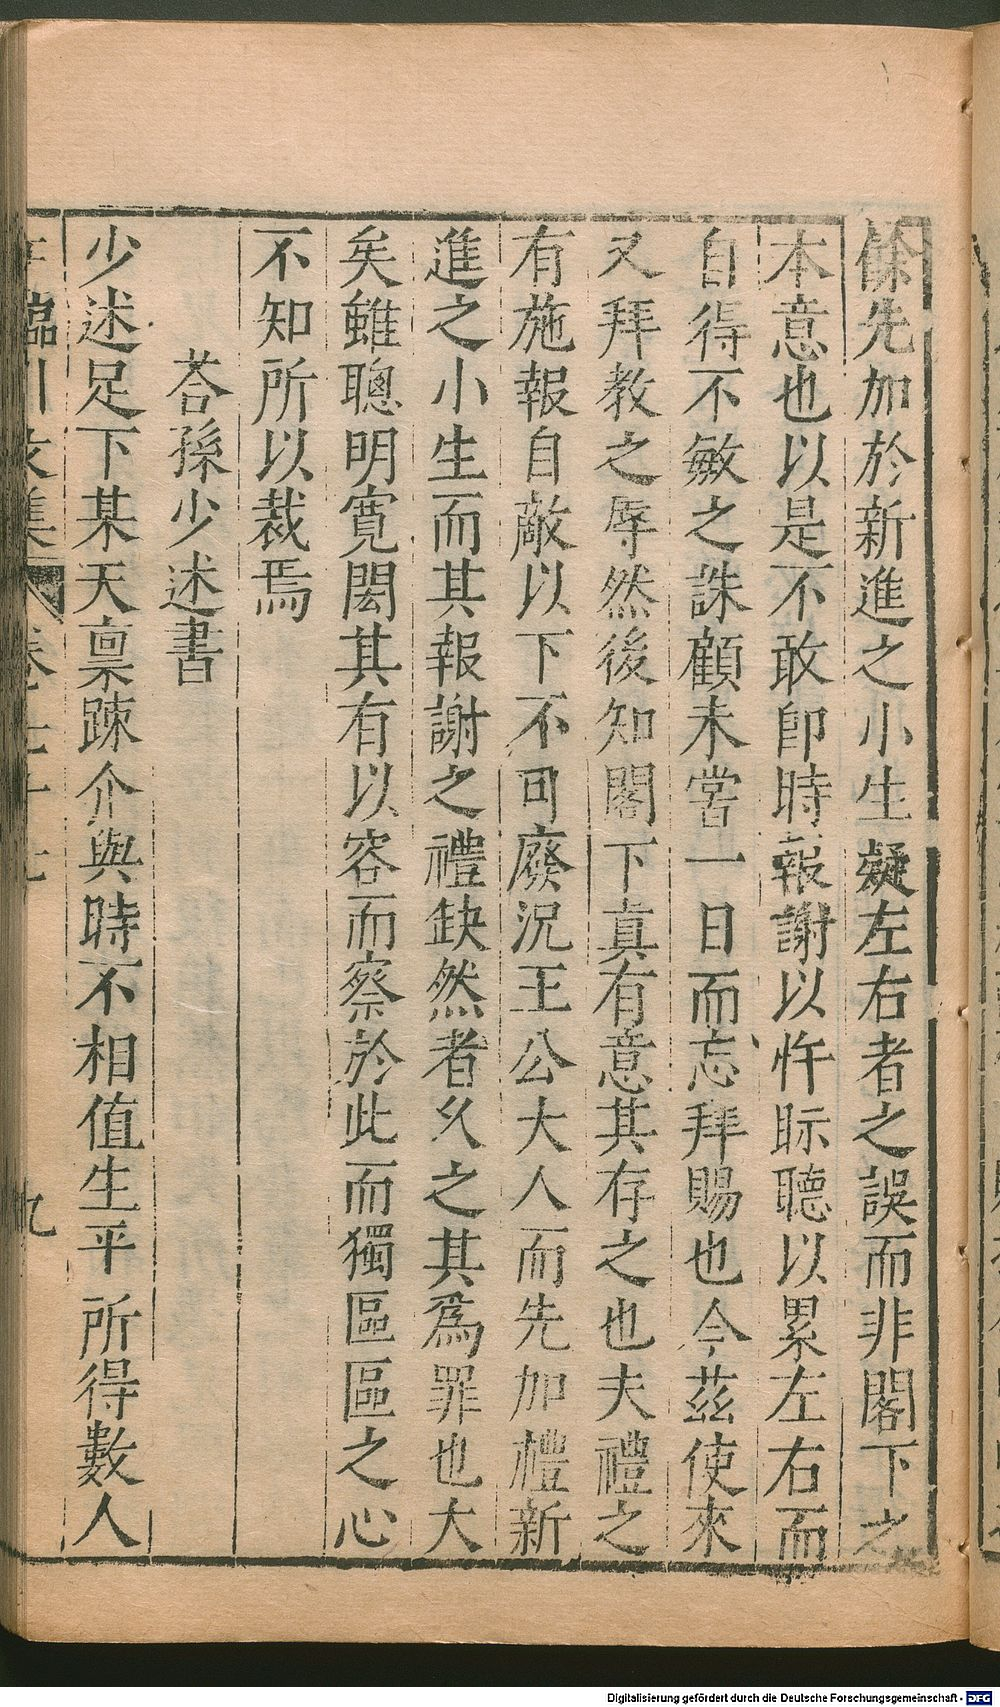 餘先加於新進之小生疑左右者之誤而非閣下之
本意也以是不敢卽時報謝以忤眎聽以累左右而
自得不敏之誅顧未嘗一日而忘拜賜也今茲使來
又拜教之辱然後知閣下真有意其存之也夫禮之
有施報自敵以下不可廢況王公大人而先加禮新
進之小生而其報謝之禮缺然者久之其爲罪也大
矣雖聰明寬閎其有以容而察於此而獨區區之心
不知所以裁焉
荅孫少述書
少述足下某天稟踈介與時不相值生平所得數人
臨川文集
卷七十七
九
Digitalisierung gefördert durch die Deutsche Forschungsgemeinschaft - DFG